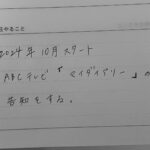 やること
2024年 10月スタート
ABCテレビ「マイダイアリー」の
告知をする。